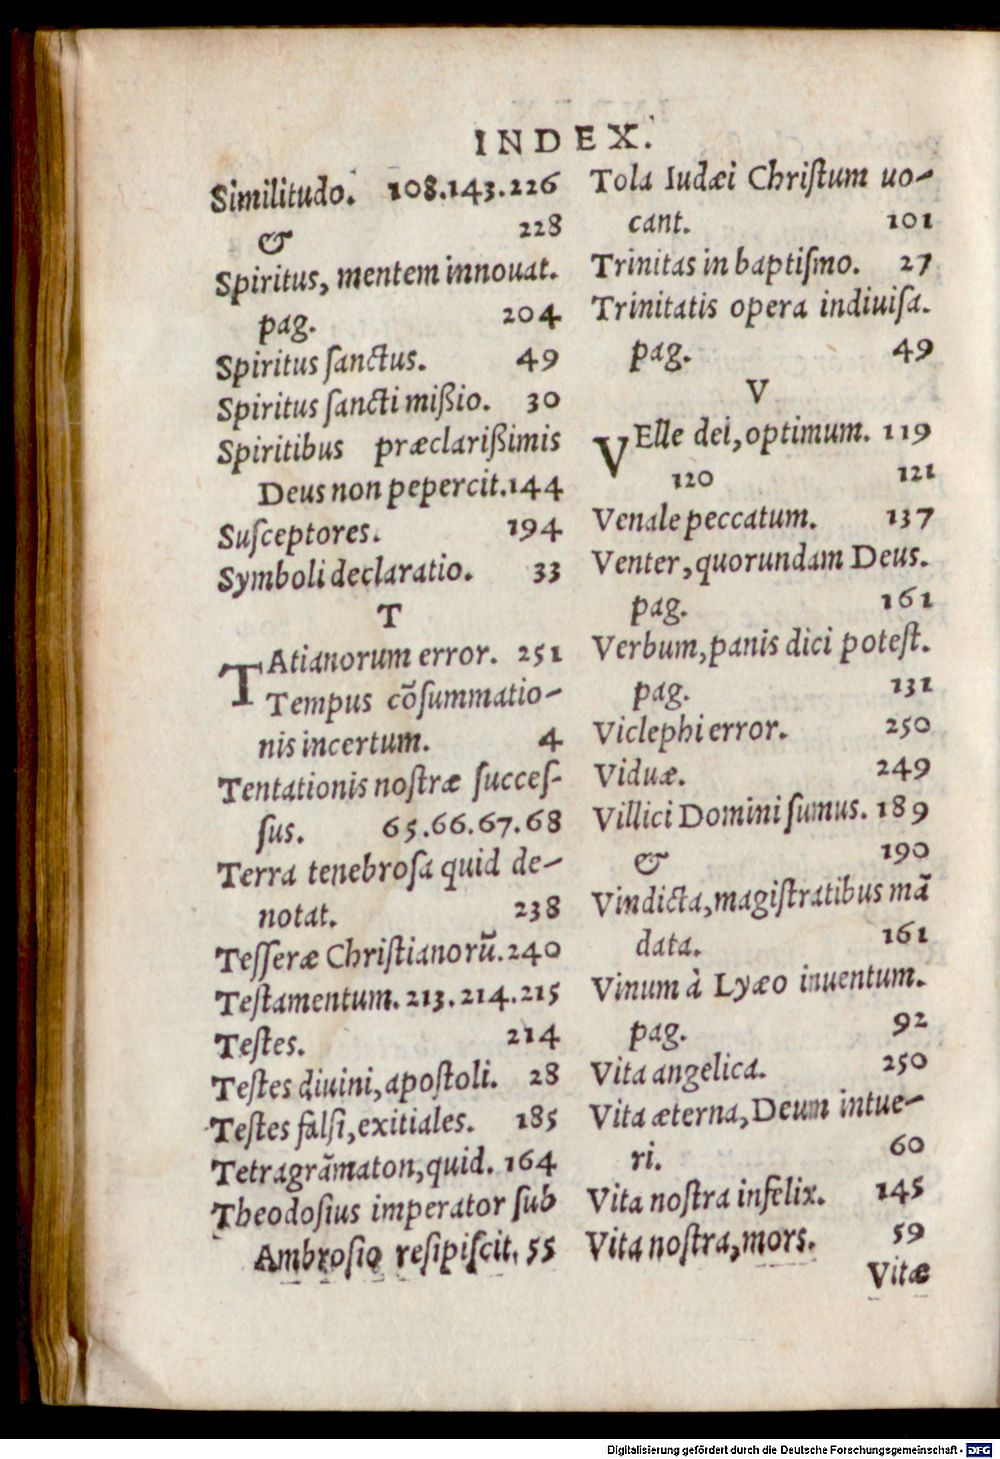 INDEX.
Similitudo. 108.143.226
& 228
Spiritus, mentem innouat.
pag. 204
Spiritus ſanctus. 49
Spiritus ſancti mißio. 30
Spiritibus præclarißimis
Deus non pepercit. 144
Suſceptores. 194
Symboli declaratio. 33
T
TAtianorum error. 251
Tempus cõſummatio-
nis incertum. 4
Tentationis noſtræ ſucceſ-
ſus. 65.66.67.68
Terra tenebroſa quid de-
notat. 238
Teſſeræ Chriſtianorũ. 240
Teſtamentum. 213.214.215
Teſtes. 214
Teſtes diuini, apoſtoli. 28
Teſtes falſi, exitiales. 185
Tetragrãmaton, quid. 164
Theodoſius imperator ſub
Ambroſio reſipiſcit. 55
Tola Iudæi Chriſtum uo-
cant. 101
Trinitas in baptiſmo. 27
Trinitatis opera indiuiſa.
pag. 49
V
VElle dei, optimum. 119
120 121
Venale peccatum. 137
Venter, quorundam Deus.
pag. 161
Verbum, panis dici poteſt.
pag. 131
Viclephi error. 250
Viduæ. 249
Villici Domini ſumus. 189
& 190
Vindicta, magiſtratibus mã
data. 161
Vinum à Lyæo inuentum.
pag. 92
Vita angelica. 250
Vita æterna, Deum intue-
ri. 60
Vita noſtra infelix. 145
Vita noſtra, mors. 59
Vitæ
Digitalisierung gefördert durch die Deutsche Forschungsgemeinschaft - DFG